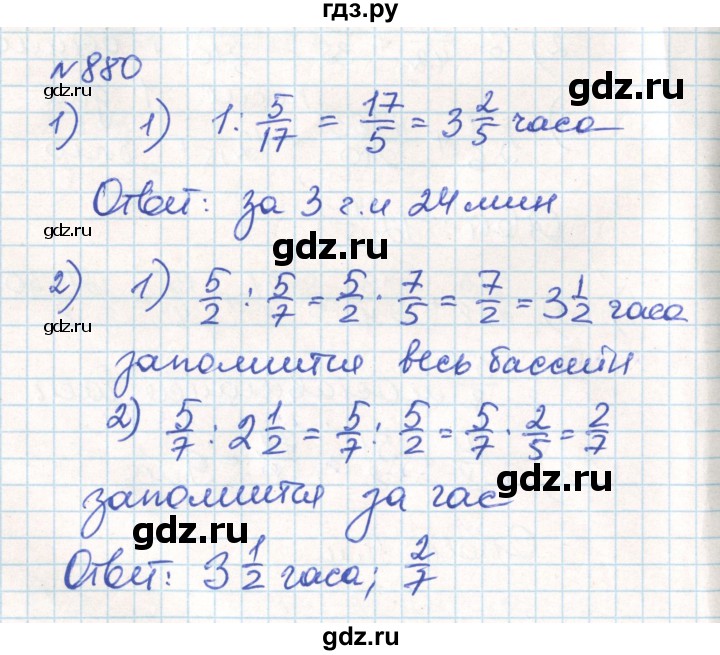 гдз.ру
№880
gdz.ru gdz.ru gdz.ru
1) 1) 1 : 5/17 = 17/5 = 3 2/5 часа
Ответ: за 3 ч. и 24 мин
gdz.ru gdz.ru gdz.ru
2) 1) 5/2 : 5/7 = 5/2 · 7/5 = 7/2 = 3 1/2 часа
gdz.ru
заполнится весь бассейн
2) 5/7 : 2 1/2 = 5/7 : 5/2 = 5/7 · 2/5 = 2/7
gdz.ru gdz.ru
заполнится за час
gdz.ru
Ответ: 3 1/2 часа; 2/7
gdz.ru gdz.ru
gdz.ru